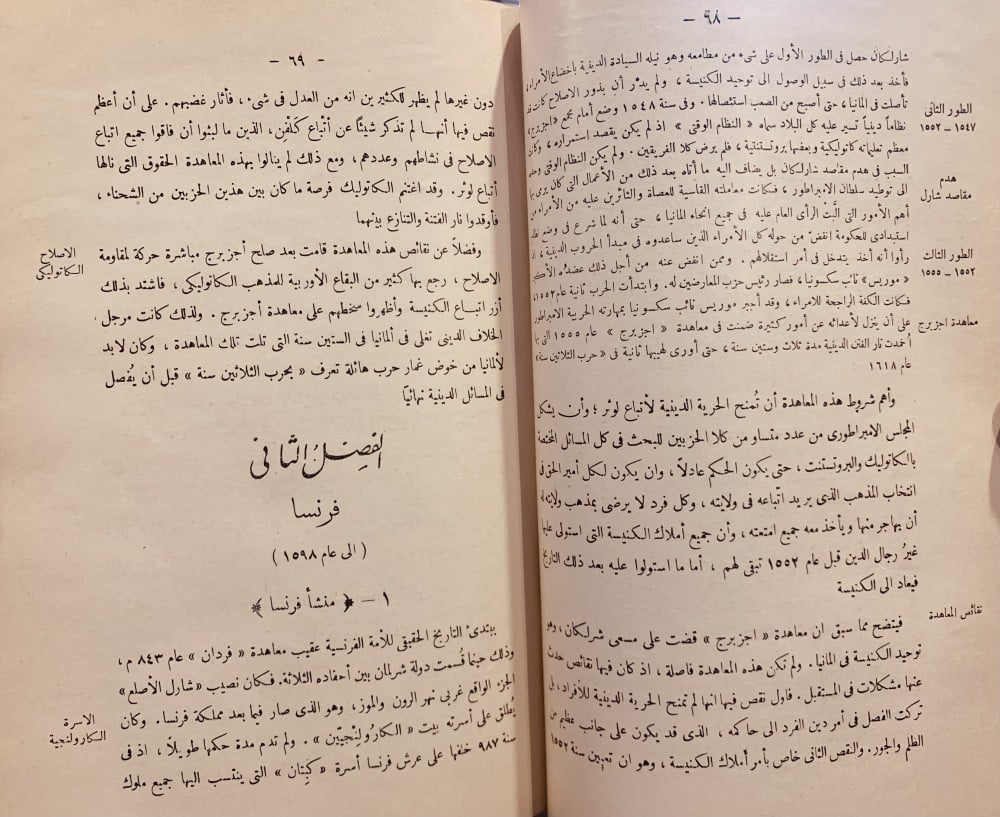 — ٦٨ —
شارلكان حصل فى الطور الأول على شىء من مطامعه وهو نيله السيادة الدينية باخضاع الأمراء،
فأخذ بعد ذلك فى سبيل الوصول الى توحيد الكنيسة ، ولم يدر أن بذور الاصلاح كانت قد
الطور الثانى
١٥٤٧ – ١٥٥٢
تأصلت فى المانيا ، حتى أصبح من الصعب استئصالها . وفى سنة ١٥٤٨ وضع أمام مجمع « اجزبرج »
نظاماً دينياً تسير عليه كل البلاد سماه « النظام الوقتى » اذ لم يكن يقصد استمراره ، وكانت
معظم تعليماته كاثوليكية وبعضها بروتستنتية ، فلم يرض كلا الفريقين . ولم يكن النظام الوقتى وحده
هدم
مقاصد شارل
السبب فى هدم مقاصد شارلكان بل يضاف اليه ما أتاه بعد ذلك من الأعمال التى كان يرمى بها
الى توطيد سلطان الامبراطور ، فكانت معاملته القاسية للعصاة والثائرين عليه من الأمراء من
أهم الأمور التى ألّبت الرأى العام عليه فى جميع انحاء المانيا ، حتى أنه لما شرع فى وضع نظام
استبدادى للحكومة انفضّ من حوله كل الأمراء الذين ساعدوه فى مبدأ الحروب الدينية ،
الطور الثالث
١٥٥٢ – ١٥٥٥
رأوا أنه أخذ يتدخل فى أمر استقلالهم . وممن انفض عنه من أجل ذلك عضده الأكبر
« موريس » نائب سكسونيا ، فصار رئيس حزب المعارضين له . وابتدأت الحرب ثانية عام ١٥٥٢،
فكانت الكفة الراجحة للامراء ، وقد أجبر موريس نائب سكسونيا بمهارته الحربية الامبراطور
معاهدة اجزبرج
على أن ينزل لأعدائه عن أمور كثيرة ضمنت فى معاهدة « اجزبرج » عام ١٥٥٥ التى بها
أخمدت نار الفتن الدينية مدة ثلاث وستين سنة ، حتى أورى لهيبها ثانية فى « حرب الثلاثين سنة »
عام ١٦١٨
وأهم شروط هذه المعاهدة أن تُمنح الحرية الدينية لأتباع لوثر ؛ وأن يشكل
المجلس الامبراطورى من عدد متساو من كلا الحزبين للبحث فى كل المسائل المختصة
بالكاثوليك والبروتستنت ، حتى يكون الحكم عادلاً ، وان يكون لكل أمير الحق فى
انتخاب المذهب الذى يريد اتّباعه فى ولايته ، وكل فرد لا يرضى بمذهب ولايته له
أن يهاجر منها ويأخذ معه جميع امتعته ، وأن جميع أملاك الكنيسة التى استولى عليها
غيرُ رجال الدين قبل عام ١٥٥٢ تبقى لهم ، أما ما استولوا عليه بعد ذلك التاريخ
فيعاد الى الكنيسة
نقائص المعاهدة
فيتضح مما سبق ان معاهدة « اجزبرج » قضت على مسعى شرلكان ، وهو
توحيد الكنيسة فى المانيا . ولم تكن هذه المعاهدة فاصلة ، اذ كان فيها نقائص حدث
عنها مشكلات فى المستقبل . فاول نقص فيها انها لم تمنح الحرية الدينية للأفراد ، بل
تركت الفصل فى أمر دين الفرد الى حاكمه ، الذى قد يكون على جانب عظيم من
الظلم والجور. والنقص الثانى خاص بأمر أملاك الكنيسة ، وهو ان تعيين سنة ١٥٥٢
— ٦٩ —
دون غيرها لم يظهر للكثيرين انه من العدل فى شىء ، فأثار غضبهم . على أن أعظم
نقص فيها أنهـا لم تذكر شيئاً عن أتْباع كَلْفِن، الذين ما لبثوا أن فاقوا جميع اتباع
الاصلاح فى نشاطهم وعددهم ، ومع ذلك لم ينالوا بهذه المعاهدة الحقوق التى نالها
أتباع لوثر. وقد اغتنم الكاثوليك فرصة ما كان بين هذين الحزبين من الشحناء ،
فأوقدوا نار الفتنة والتنازع بينهما
الاصلاح
الكاثوليكى
وفضلاً عن نقائص هذه المعاهدة قامت بعد صلح أجزبرج مباشرة حركة لمقاومة
الاصلاح ، رجع بها كثير من البقاع الأوربية للمذهب الكاثوليكى ، فاشتد بذلك
أزر اتبـاع الكنيسة وأظهروا سخطهم على معاهدة أجزبرج . ولذلك كانت مرجل
الخلاف الدينى تغلى فى ألمانيا فى الستين سنة التى تلت تلك المعاهدة ، وكان لابد
لألمانيا من خوض غمار حرب هائلة تعرف « بحرب الثلاثين سنة » قبل أن يُفصل
فى المسائل الدينية نهائيّا
الفصل الثانى
فرنسا
( الى عام ١٥٩٨ )
١ — ﴿ منشأ فرنسا ﴾
يبتدئ التاريخ الحقيقى للأمة الفرنسية عقيب معاهدة « فردان » عام ٨٤٣ م ،
وذلك حينما قُسمت دولة شرلمان بين أحفاده الثلاثة. فكان نصيب « شارل الأصلع »
الجزء الواقع غربى نهر الرون والموز، وهو الذى صار فيما بعد مملكة فرنسا. وكان
الاسرة
الكارولنجية
يُطلق على أسرته بيت « الكارُولِنْجيِّين » . ولم تدم مدة حكمها طويلاً ، اذ فى
سنة ٩٨٧ خلفها على عرش فرنسا أسرة « كَپتان » التى ينتسب اليها جميع ملوك